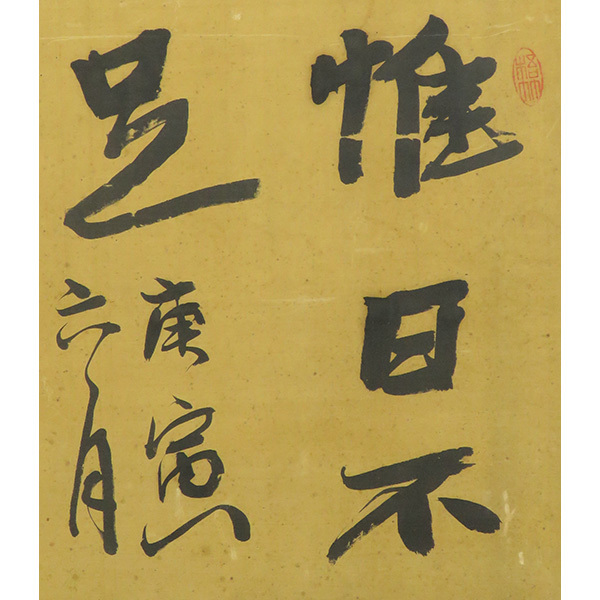 惟日不
足
庚寅
六月